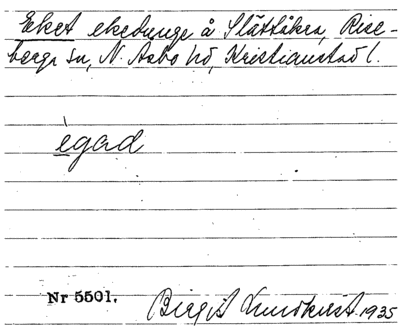 Eket ekedunge å Slättåkra, Rise-
berga sn, N. Åsbo hd, Kristianstad l.
ègad
Nr 5501. Birgit Lundkvist 1935